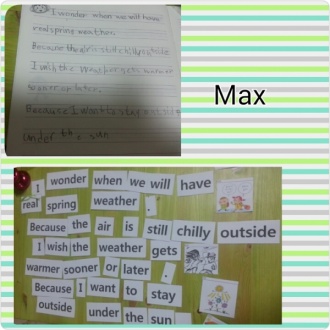 I wonder when we will have
real spring weather.
Because the air is still chilly outside
I wish the weather gets warmer
sooner or later.
Because I want to stay outside
under the sun
Max
I wonder when we will have
real spring weather .
Because the air is still chilly outside
I wish the weather gets
warmer sooner or later .
Because I want to stay
outside under the sun